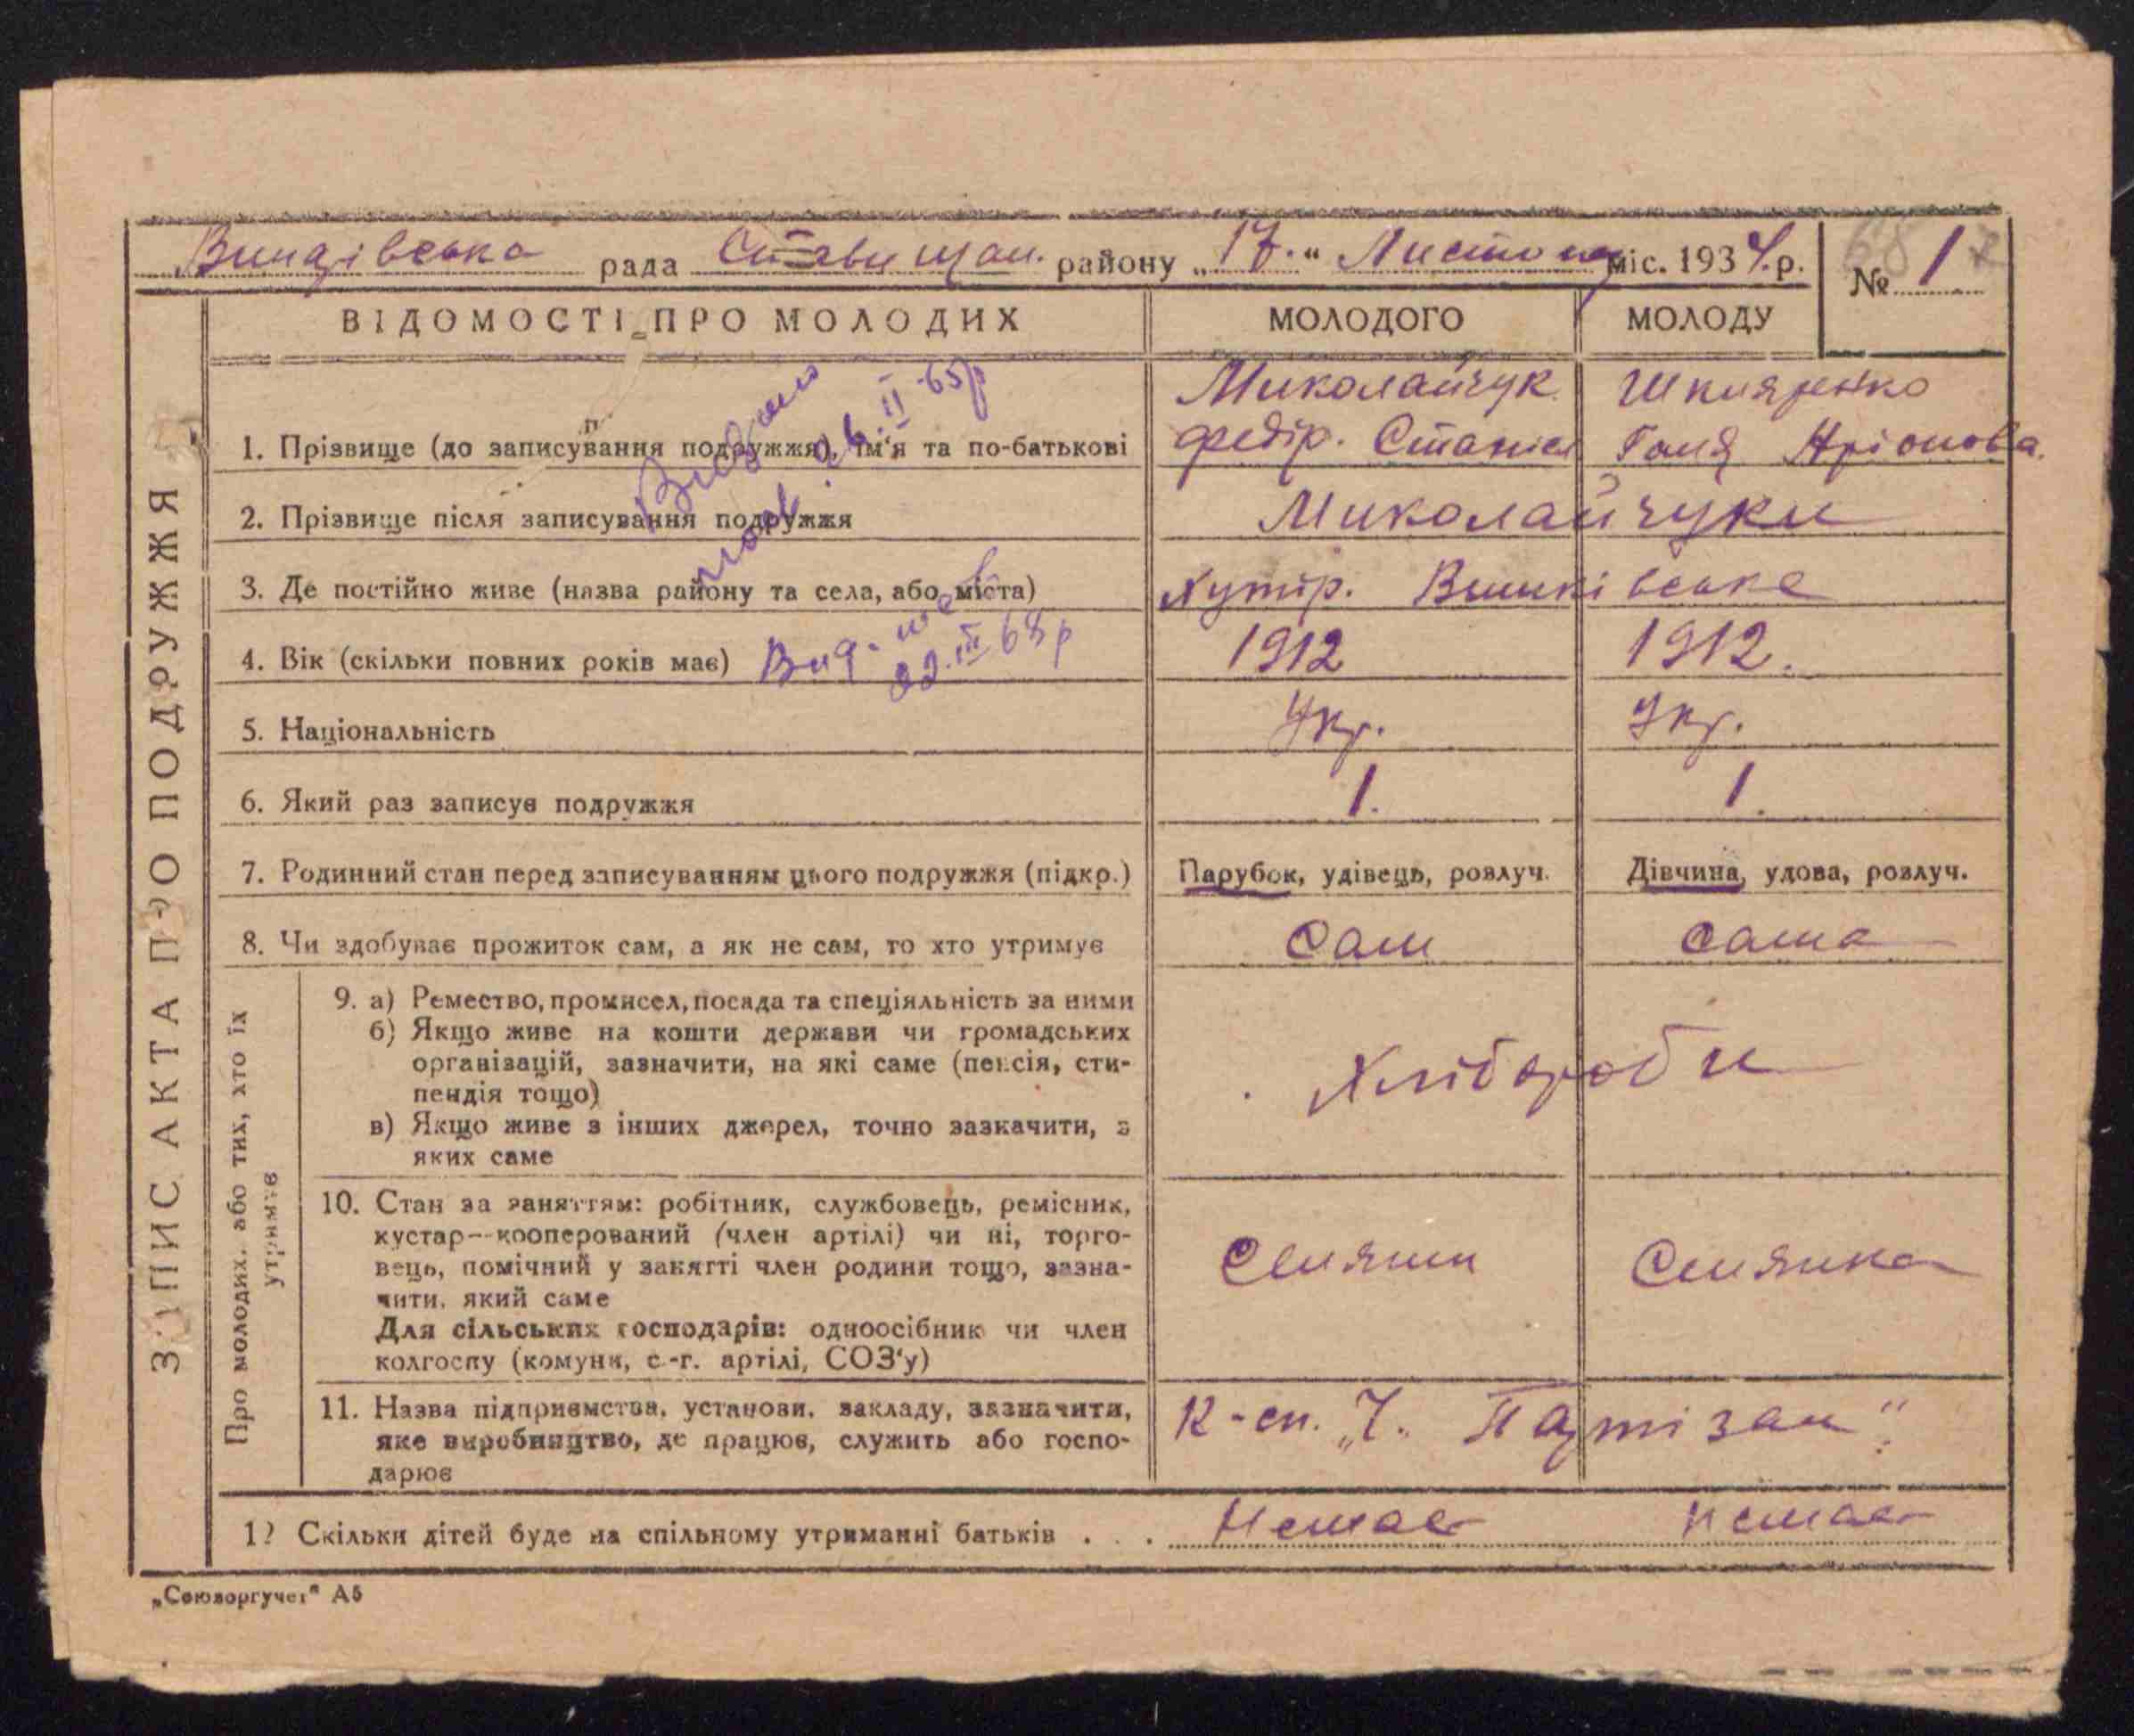 рада Ставищан. району „17.“ Листопад міс. 1934.р. № 1
ВІДОМОСТІ ПРО МОЛОДИХ МОЛОДОГО МОЛОДУ
ЗАПИС АКТА ПРО ПОДРУЖЖЯ
1. Прізвище (до записування подружжя), ім‘я та по-батькові
Миколайчук Федір. Станісл
Шкляренко Ганя
Видано пов. 26.II.65р
2. Прізвище після записування подружжя Миколайчуки
3. Де постійно живе (назва району та села, або міста) Хутір.
4. Вік (скільки повних років має) 1912 1912.
22.III 68р
5. Національність Укр. Укр.
6. Який раз записує подружжя 1. 1.
7. Родинний стан перед записуванням цього подружжя (підкр.) Парубок, удівець, розлуч. Дівчина, удова, розлуч.
8. Чи здобуває прожиток сам, а як не сам, то хто утримує Сам Сама
Про молодих, або тих, хто їх
утримує
9. а) Ремество, промисел, посада та спеціяльність за ними
б) Якщо живе на кошти держави чи громадських
організацій, зазначити, на які саме (пенсія, сти-
пендія тощо)
в) Якщо живе з інших джерел, точно зазкачити, з
яких саме
Хлібороби
10. Стан за заняттям: робітник, службовець, ремісник,
кустар—кооперований (член артілі) чи ні, торго-
вець, помічний у занятті член родини тощо, зазна-
чити, який саме
Для сільських господарів: одноосібник чи член
колгоспу (комуни, с.-г. артілі, СОЗ‘у)
Селянин Селянка
11. Назва підприємства, установи, закладу, зазначити,
яке виробництво, де працює, служить або госпо-
дарює
К-сп. „Ч. Партізан“
12 Скільки дітей буде на спільному утриманні батьків . . . Немає Немає
„Союзоргучет“ А5